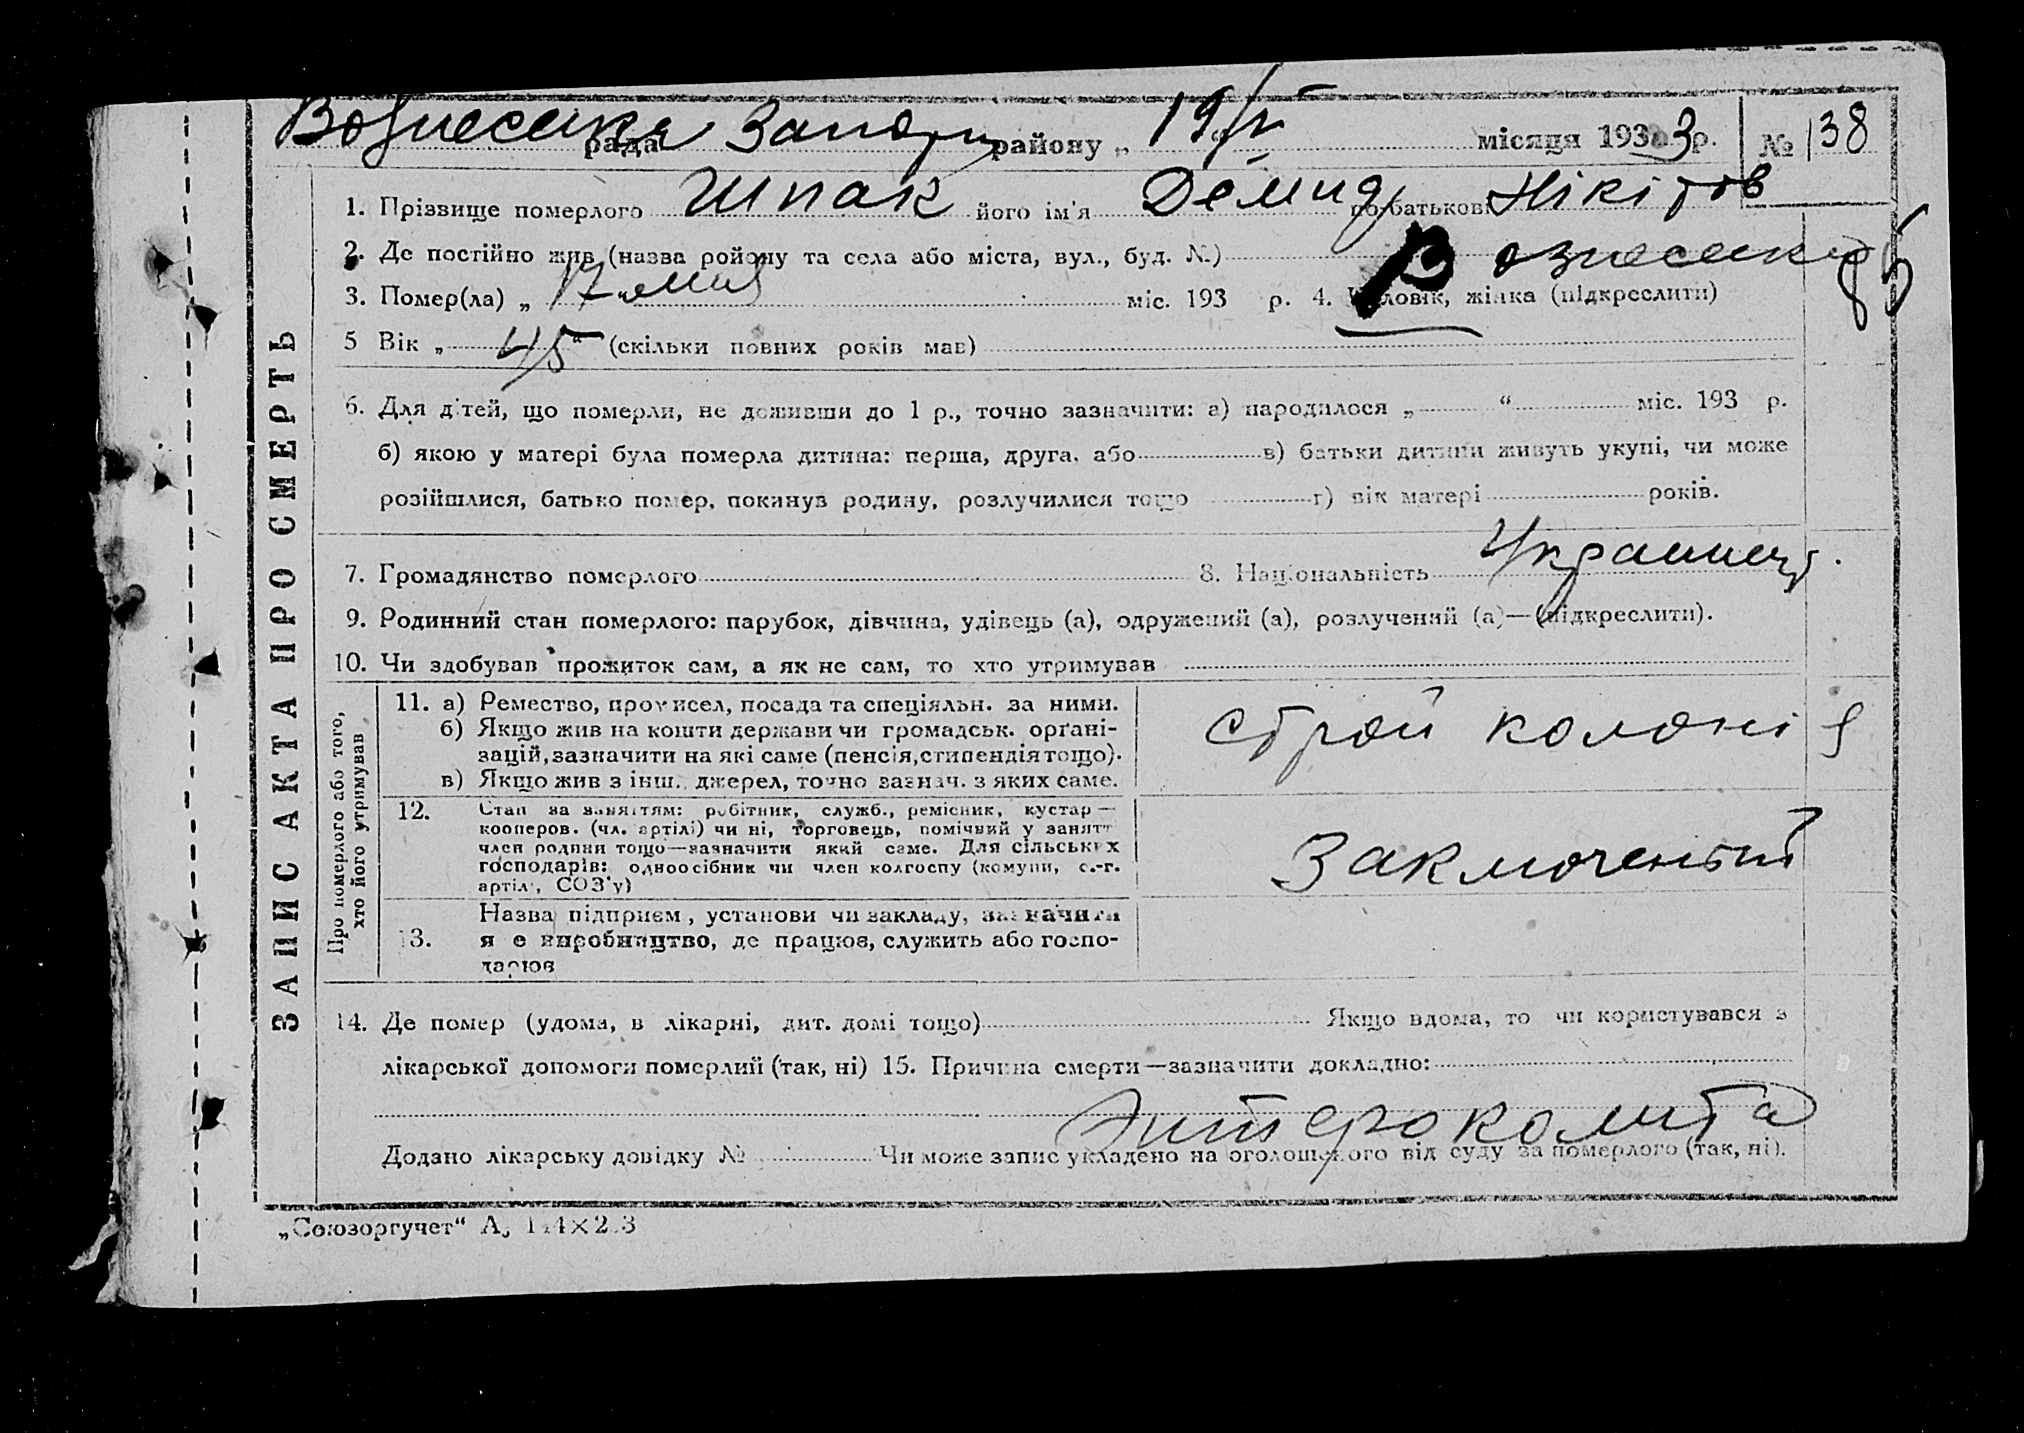 Вознесенка рада Запоріз району „ 19/V місяця 1933 р. № 138
1. Прізвище померлого Шпак його ім'я Демид по батькові Нікітов
2. Де постійно жив (назва ройону та села або міста, вул., буд. №) Вознесенка
3. Помер(ла) „ 17 мая міс. 193 р. 4. Чоловік, жінка (підкреслити)
85
5 Вік „ 45 “ (скільки повних років мав)
6. Для дітей, що померли, не доживши до 1 р., точно зазначити: а) народилося „ “ міс. 193 р.
б) якою у матері була померла дитина: перша, друга, або в) батьки дитини живуть укупі, чи може
розійшлися, батько помер, покинув родину, розлучилися тощо г) вік матері років.
7. Громадянство померлого 8. Національність Украинец
9. Родинний стан померлого: парубок, дівчина, удівець (а), одружений (а), розлучений (а)—(підкреслити).
10. Чи здобував прожиток сам, а як не сам, то хто утримував
ЗАПИС АКТА ПРО СМЕРТЬ
Про померлого або того, хто його утримував
11. а) Ремество, промисел, посада та спеціяльн. за ними.
б) Якщо жив на кошти держави чи громадськ. орґані-
зацій, зазначити на які саме (пенсія, стипендія тощо).
в) Якщо жив з інш. джерел, точно зазнач. з яких саме.
Строй колонія
12. Стан за заняттям: робітник, служб., ремісник, кустар —
кооперов. (чл. артілі) чи ні, торговець, помічний у занятт
член родини тощо—зазначити який саме. Для сільських
господарів: одноосібник чи член колгоспу (комуни, с.-г.
артілі, СОЗ'у)
Заключеный
13. Назва підприєм, установи чи закладу, зазначити
я е виробництво, де працює, служить або госпо-
дарює
14. Де помер (удома, в лікарні, дит. домі тощо) Якщо вдома, то чи користувався з
лікарської допомоги померлий (так, ні) 15. Причина смерти—зазначити докладно:
Энтероколита
Додано лікарську довідку № Чи може запис укладено на оголошеного від суду за померлого (так, ні).
„Союзоргучет“